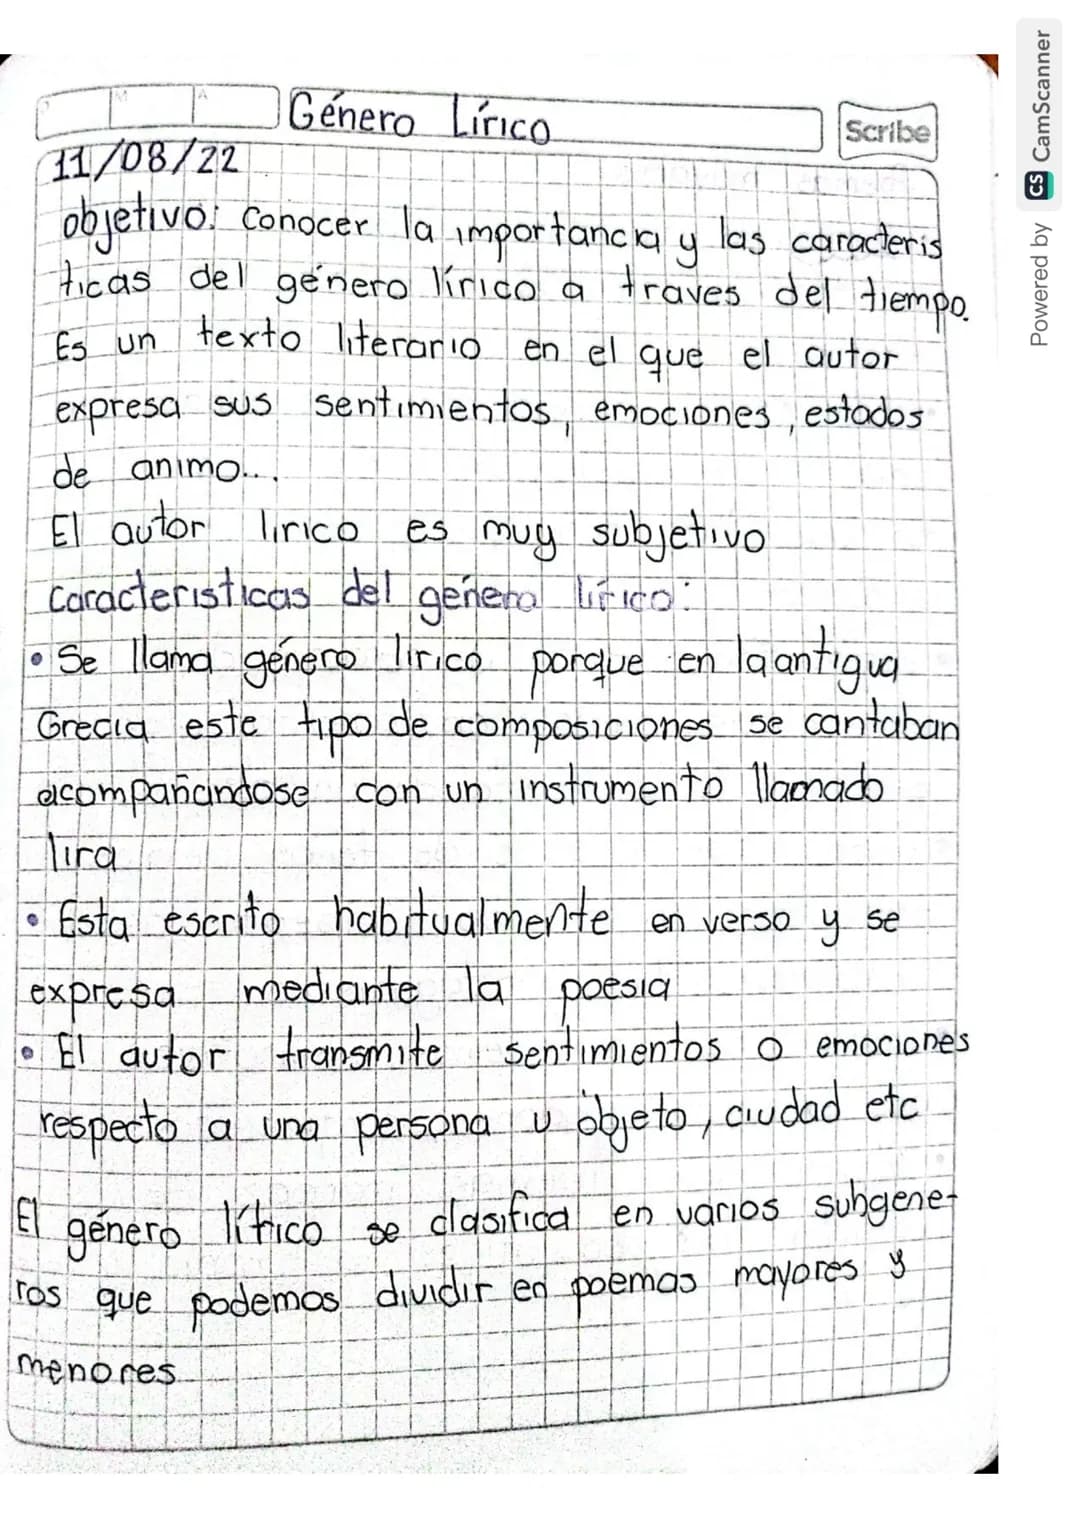 Género Lírico
Scribe
11/08/22
objetivo: Conocer la importancia y las caracteris
ticas del género lírico a traves del tiempo.
Es un texto literario en el que el autor
expresa sus sentimientos, emociones, estados
de animo...
El autor lirico es muy subjetivo
Caracteristicas del género lírico:
• Se llama género lirico porque en la antigua
Grecia este tipo de composiciones se cantaban
acompañandose con un instrumento llamado
lira
• Esta escrito habitualmente en verso y se
expresa mediante la poesia
• El autor transmite sentimientos o emociones
respecto a una persona u objeto, ciudad etc
El género lírico se clasifica en varios subgene-
ros que podemos dividir en poemas mayores y
menores
Powered by CS CamScanner